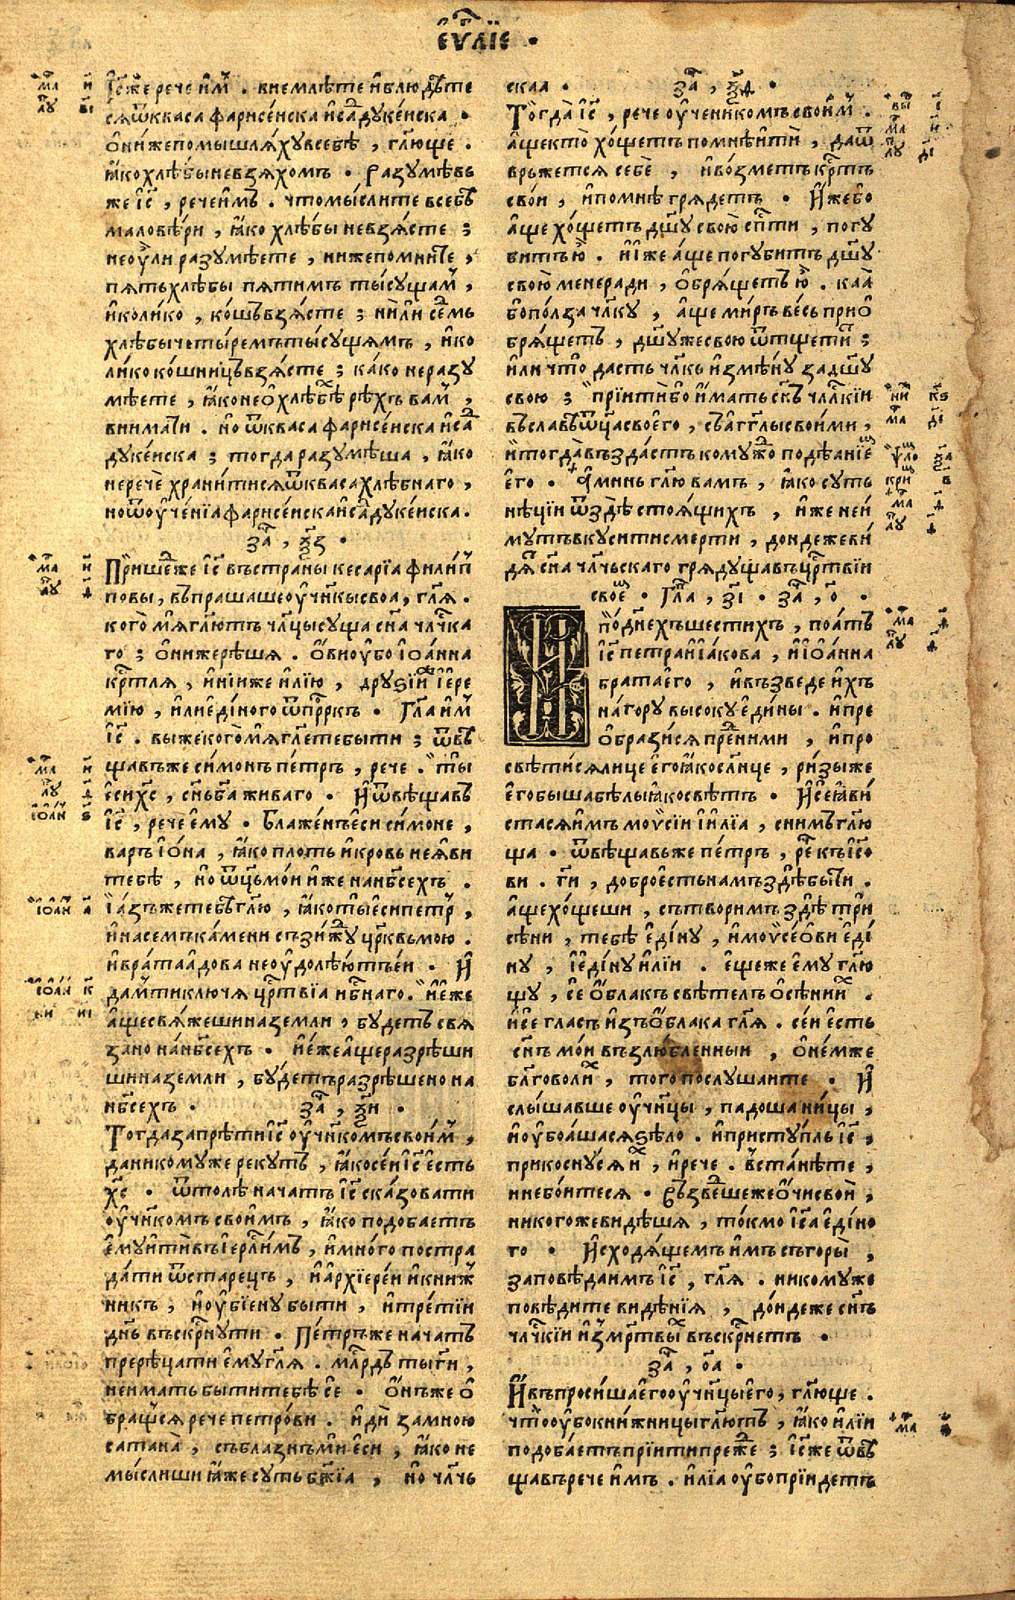 єѵⷢ҇лїє .
І҆с҃же рече и҆мⷨ . внемлѣте и҆блюдѣте
сѧѿкваса фарисеиска и҆саⷣдукеиска .
ѻ҆ниже помышлѧхувсебѣ , гл҃юще .
ꙗ҆кохлѣбыневзѧхомъ . Разумѣвь
же і҆с҃ , речеи҆мъ . чтомыслите всебѣ
маловѣри , ꙗ҆ко хлѣбы невзѧсте ;
неоу҆ли разумѣете , нижепомните ,
пѧтьхлѣбы пѧтимъ тысущамⷨ ,
и҆колико , кошьвзѧсте ; нили сеⷣмь
хлѣбычетыремътысущѧмъ , и҆ко
лико кошницьвзѧсте ; како неразу
мѣете , ꙗ҆конеѻ҆хлѣбѣⷯ рѣхъ вамⷨ ,
внимати . но ѿкваса фарисеиска и҆саⷣ
дукеиска ; тогда разумѣша , ꙗ҆ко
нерече хранитисѧѿквасахлѣбнаго ,
ноѿоу҆ченїа фарисеискаи҆саⷣдукеиска .
заⷱ҇ , ѯ҃з .
Пришеⷣже і҆с҃ въстраны кесарїа филиⷫ
повы , въпрашашеоу҆чн҃кысвоа , гл҃ѧ .
кого мѧгл҃ютъ чл҃цысуща сн҃а чл҃чка
го ; ѻ҆нижерѣшѧ . ѻ҆виоубо і҆ѻ҆анна
крⷭ҇тлѧ , и҆ниже и҆лию , друѕіи и҆ і҆ере
мїю , и҆лиединого ѿпрⷪ҇ркъ . Гл҃а и҆мⷨ
і҆с҃ . вы же кого мѧгл҃ете быти ; ѿвѣ
щавъже симонъ петръ , рече . ты
еси хс҃ , сн҃ъ б҃а живаго . И҆ѿвѣщавъ
і҆с҃ , рече ему . Блаженъеси симоне ,
варъ і҆ѻ҆на , ꙗ҆ко плоть и҆ кровь неꙗ҆ви
тебѣ , но ѿц҃ьмои и҆же нанб҃сехъ .
І҆азъжетебѣгл҃ю , ꙗ҆котыесипетръ ,
и҆насемъкамени съзиⷤду цр҃ковьмою .
и҆врата адова неоу҆долѣютъеи . И҆
дамⷨтиключѧ цр҃ⷭтвїа нб҃наго . и҆еже
аще свѧжешиназемли , будетъ свѧ
зано нанб҃сехъ . и҆еже ащеразрѣши
шиназемли , будетъразрѣшено на
нб҃сехъ . заⷱ҇ , ѯ҃и .
Тогдазапрѣтиі҆с҃ оу҆чн҃комъсвоимⷨ ,
даникомуже рекутъ , ꙗ҆косеи і҆с҃ есть
хс҃ . ѿтолѣ начатъ і҆с҃ сказовати
оу҆чн҃комъ своимъ , ꙗ҆ко подобаетъ
емуитивъі҆ерл҃имъ , и҆много постра
дати ѿстарецъ , и҆архїереи и҆книжⷨ
никъ , и҆оу҆бїену быти , и҆третїи
днь въскрⷭ҇нути . Петръже начатъ
прерѣцати емугл҃ѧ . мл҃рдъ тыг҃и ,
неимать бытитебѣ се . ѻ҆нъже ѻ҆
бращсѧрече петрови . иди замною
сатана , съблазнъми еси , ꙗ҆ко не
мыслиши ꙗ҆же суть бж҃їа , но чл҃чь
скаа . заⷱ҇ , ѯ҃д .
Тогда і҆с҃ , рече оу҆ченикомъсвоимⷨ .
ащекто хощетъ помнѣити , даѿ
врьжетсѧ себе , и҆возметъ крⷭ҇тъ
свои , и҆помнѣ грѧдетъ . И҆жебо
аще хощетъ дш҃у свою сп҃сти , погу
битъю . ииже аще погубитъ дш҃у
свою менеради , ѻ҆брѧщетъ ю . каа
боползачл҃ку , аще миръ весь приѻ҆
брѧщетъ , дш҃ужесвою ѿтщетиⷮ ;
и҆ли что дасть чл҃къ измѣну задш҃у
свою ; прїитибо имать сн҃ъ чл҃чкїи
въславѣѿц҃асвоего , съагг҃лысвоими ,
и҆тогдавъздастъкомужⷣо подѣанїе
его . Аминь гл҃ю вамъ , ꙗ҆ко суть
нѣцїи ѿздѣ стоѧщихъ , и҆же неи
мутъвкуситисмерти , дондежеви
дѧⷮ сн҃а чл҃чьскаго грѧдущавъцр҃ⷭтвїи
своеⷨ . Гл҃а , з҃і . заⷱ҇ , о҃ .
Поднехъшестихъ , поатъ
і҆с҃ петраи҆іакова , и҆і҆ѻ҆анна
братаего , и҆възведе и҆хъ
нагору высоку едины . и҆пре
ѻ҆бразисѧпреⷣними , и҆про
свѣтисѧлице егоꙗ҆косл҃нце , ризыже
егобышабѣлыꙗ҆косвѣтъ . И҆сеꙗ҆ви
стасѧимъ моѵ҆сїи и҆и҆лїа , снимъгл҃ю
ща . ѿвѣщавьже петръ , реⷱ҇ къі҆со
ви . г҃и , доброестьнамъздѣбыти .
ащехощеши , сътворимъ здѣ три
сѣни , тебѣ едину , и҆моѵ҆сеѻ҆ви еди
ну , і҆единуи҆лїи . ещеже емугл҃ю
щу , се ѻ҆блакъ свѣтелъ ѻ҆сѣниⷯ .
и҆се гласъ и҆зъѻ҆блака гл҃ѧ . сеи есть
сн҃ъ мои възлюбленныи , ѻ҆немже
бл҃говолиⷯ , того послушаите . И҆
слышавше оу҆чн҃цы , падоша ницы ,
и҆оу҆боашасѧѕѣло . и҆приступль і҆с҃ ,
прикоснусѧ иⷯ , и҆рече . въстанѣте ,
инебоитесѧ . Възвеⷣшежеѻ҆чисвои ,
никогожевидѣшѧ , токмо і҆с҃а едино
го . И҆сходѧщемъ имъ съгоры ,
заповѣдаимъ і҆с҃ , гл҃ѧ . никомуже
поведите видѣнїѧ , дондеже сн҃ъ
чл҃чкїи и҆змр҃твыⷯ въскрⷭ҇нетъ .
заⷱ҇ , о҃а .
И҆въпросишаегооу҆чн҃цыего , гл҃юще .
чтооу҆бокнижницыгл҃ютъ , ꙗ҆ко и҆лїи
подобаетъпрїитипреⷤже ; і҆с҃же ѿвѣ
щавъ рече имъ . и҆лїа оу҆бопрїидетъ